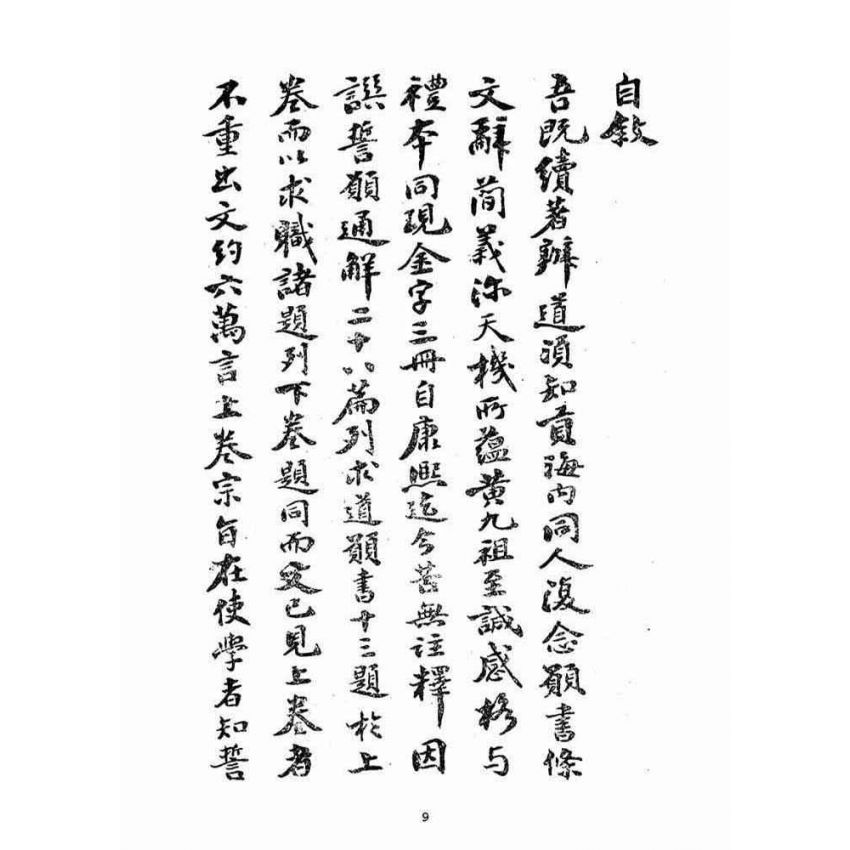 自敘
吾既續著辦道須知貢海内同人復念願書條
文辭簡義深天機所蘊黄九祖至誠感格与
禮本同現金字三冊自康熙迄今苦無註釋因
譔誓願通解二十八篇列求道願書十三題於上
卷而以求職諸題列下卷題同而文已見上卷者
不重出文約六萬言上卷宗旨在使學者知誓
9